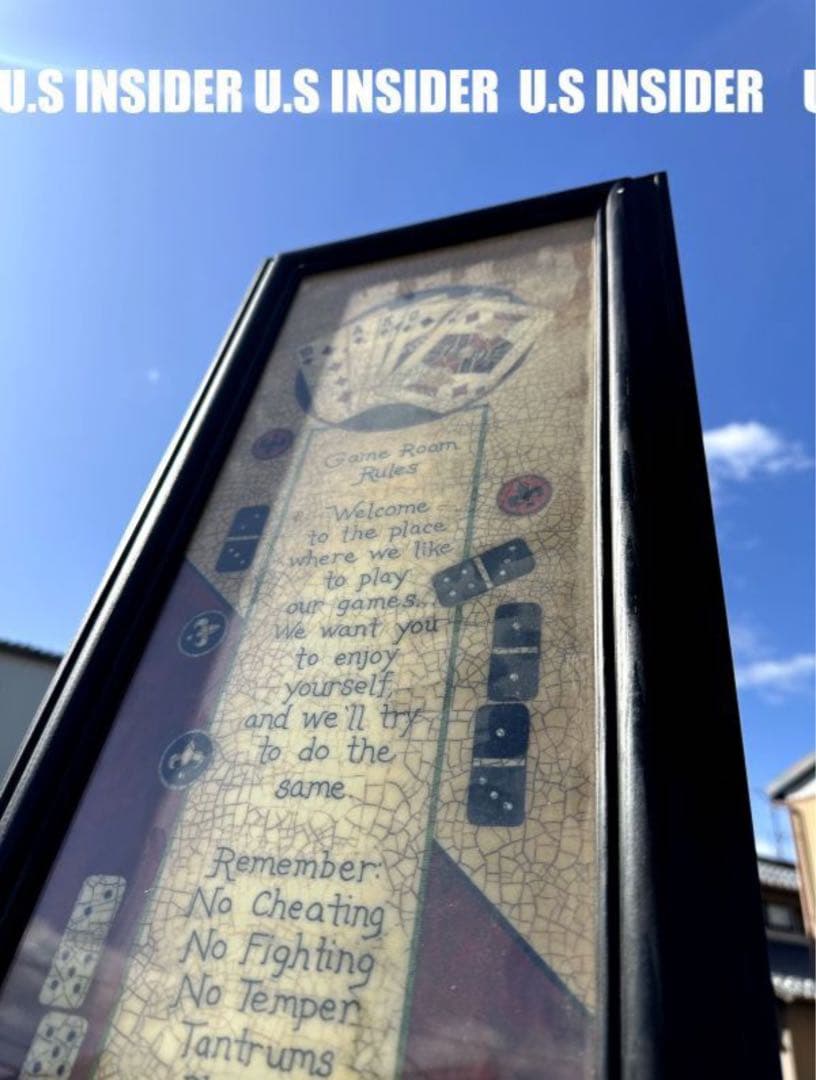 U.S INSIDER U.S INSIDER U.S INSIDER U
Game Room
Rules
Welcome
to the place
where we like
to play
our games...
We want you
to enjoy
yourself,
and we'll try
to do the
same.
Remember:
No Cheating
No Fighting
No Temper
Tantrums